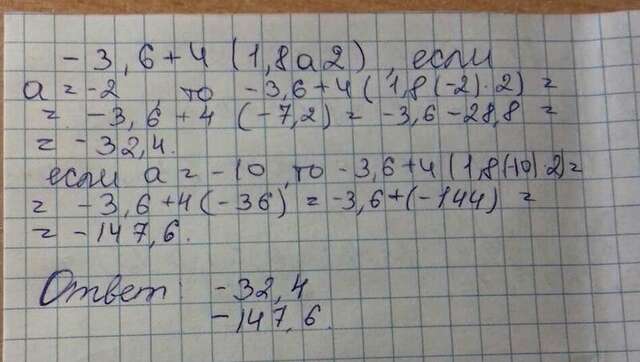 -3,6+4 (1,8a2), если
a=-2, то -3,6+4(1,8(-2)·2)=
= -3,6+4 (-7,2)= -3,6-28,8=
= -32,4.
если a=-10, то -3,6+4(1,8(-10)2)=
= -3,6+4(-36)=-3,6+(-144)=
= -147,6.
Ответ: -32,4
-147,6.